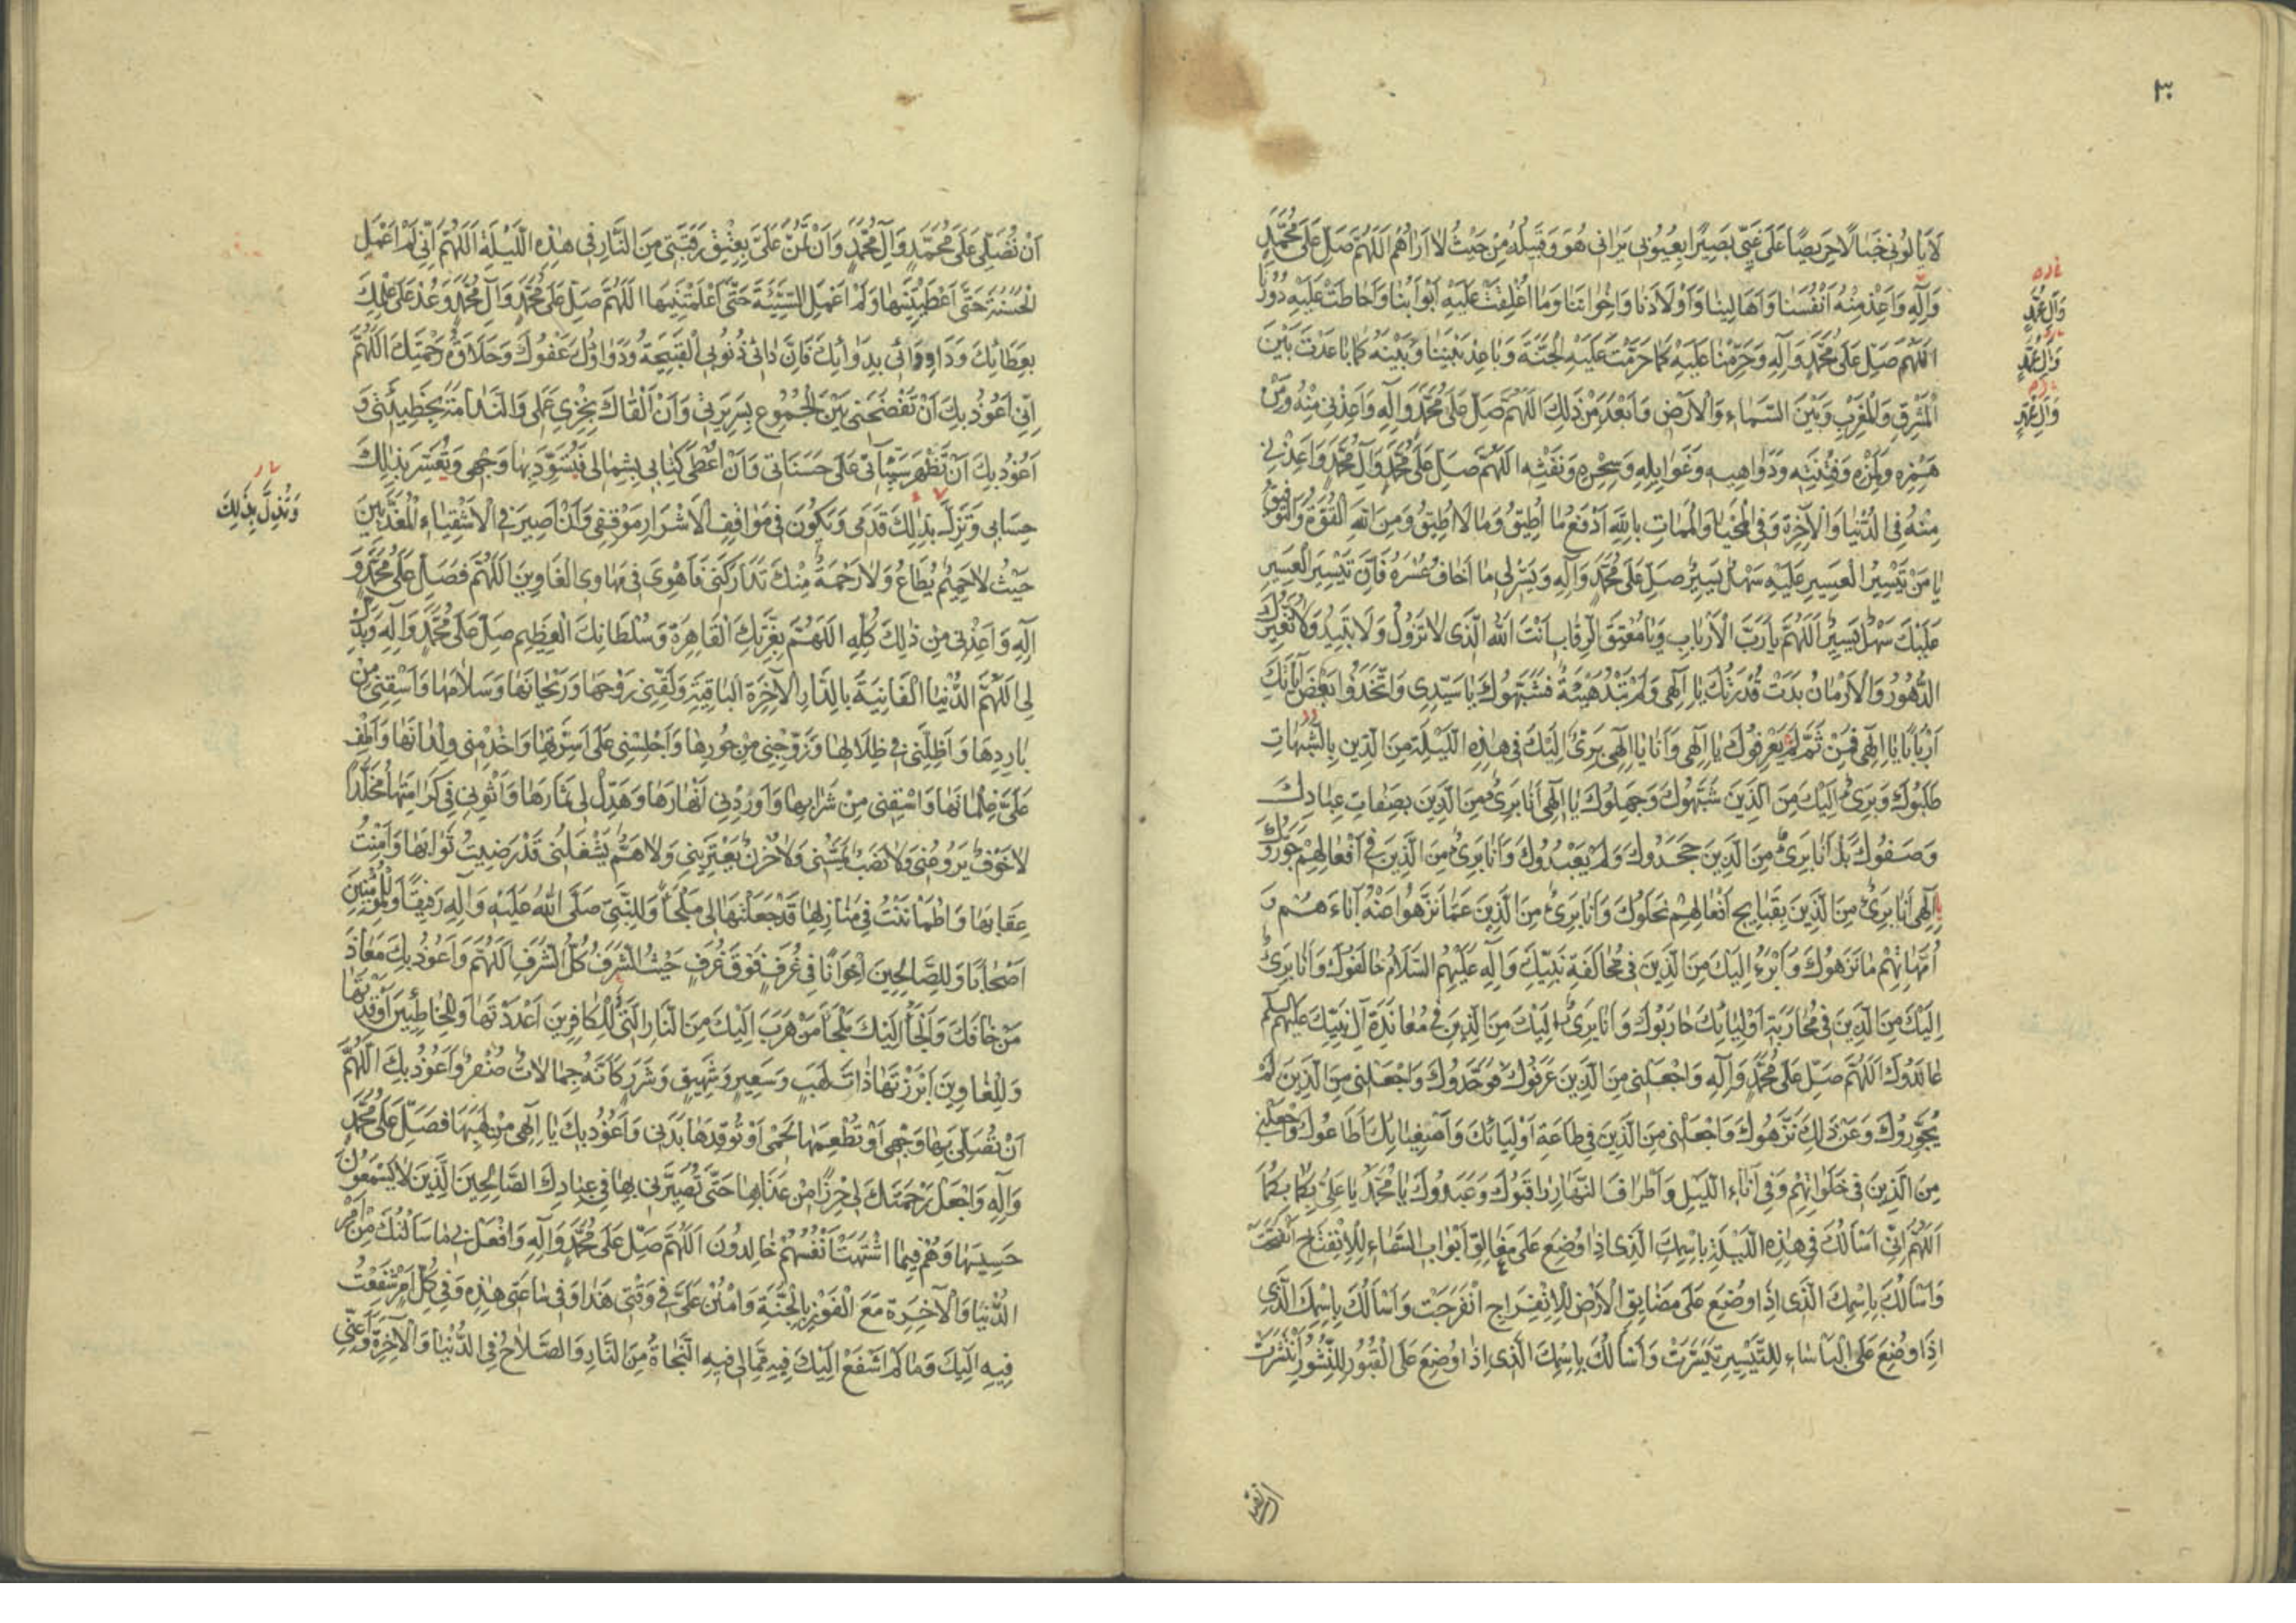 ٣٠
لَا يَأْلُونِي خَبَالًا حَرِيصًا عَلَى غَيِّي بَصِيرًا بِعُيُوبِي يَرَانِي هُوَ وَقَبِيلُهُ مِنْ حَيْثُ لَا أَرَاهُمُ اللَّهُمَّ صَلِّ عَلَى مُحَمَّدٍ
وَآلِهِ وَأَعِذْ مِنْهُ أَنْفُسَنَا وَأَهَالِينَا وَأَوْلَادَنَا وَإِخْوَانَنَا وَمَا أُغْلِقَتْ عَلَيْهِ أَبْوَابُنَا وَأَحَاطَتْ عَلَيْهِ دُورُنَا
وَآلِ مُحَمَّدٍ
اللَّهُمَّ صَلِّ عَلَى مُحَمَّدٍ وَآلِهِ وَحَرِّمْنَا عَلَيْهِ كَمَا حَرَّمْتَ عَلَيْهِ الْجَنَّةَ وَبَاعِدْ بَيْنَنَا وَبَيْنَهُ كَمَا بَاعَدْتَ بَيْنَ
وَآلِ مُحَمَّدٍ
الْمَشْرِقِ وَالْمَغْرِبِ وَبَيْنَ السَّمَاءِ وَالْأَرْضِ وَأَبْعَدَ مِنْ ذَلِكَ اللَّهُمَّ صَلِّ عَلَى مُحَمَّدٍ وَآلِهِ وَأَعِذْنِي مِنْهُ وَمِنْ
وَآلِ مُحَمَّدٍ
هَمْزِهِ وَلَمْزِهِ وَفِتْنَتِهِ وَدَوَاهِيهِ وَغَوَايِلِهِ وَسِحْرِهِ وَنَفْثِهِ اللَّهُمَّ صَلِّ عَلَى مُحَمَّدٍ وَآلِ مُحَمَّدٍ وَأَعِذْنِي
مِنْهُ فِي الدُّنْيَا وَالْآخِرَةِ وَفِي الْمَحْيَا وَالْمَمَاتِ بِاللَّهِ أَدْفَعُ مَا أُطِيقُ وَمَا لَا أُطِيقُ وَمِنَ اللَّهِ الْقُوَّةُ وَالتَّوْفِيقُ
يَا مَنْ تَيْسِيرُ الْعَسِيرِ عَلَيْهِ سَهْلٌ يَسِيرٌ صَلِّ عَلَى مُحَمَّدٍ وَآلِهِ وَيَسِّرْ لِي مَا أَخَافُ عُسْرَهُ فَإِنَّ تَيْسِيرَ الْعَسِيرِ
عَلَيْكَ سَهْلٌ يَسِيرٌ اللَّهُمَّ يَا رَبَّ الْأَرْبَابِ وَيَا مُعْتِقَ الرِّقَابِ أَنْتَ اللَّهُ الَّذِي لَا تَزُولُ وَلَا تَبِيدُ وَلَا تُغَيِّرُكَ
الدُّهُورُ وَالْأَزْمَانُ بَدَتْ قُدْرَتُكَ يَا إِلَهِي وَلَمْ تَبْدُ هَيْئَةٌ فَشَبَّهُوكَ يَا سَيِّدِي وَاتَّخَذُوا بَعْضَ آيَاتِكَ
أَرْبَابًا يَا إِلَهِي فَمِنْ ثَمَّ لَمْ يَعْرِفُوكَ يَا إِلَهِي وَأَنَا يَا إِلَهِي بَرِيءٌ إِلَيْكَ فِي هَذِهِ اللَّيْلَةِ مِنَ الَّذِينَ بِالشُّبُهَاتِ
طَلَبُوكَ وَبَرِيءٌ إِلَيْكَ مِنَ الَّذِينَ شَبَّهُوكَ وَجَهِلُوكَ يَا إِلَهِي أَنَا بَرِيءٌ مِنَ الَّذِينَ بِصِفَاتِ عِبَادِكَ
وَصَفُوكَ بَلْ أَنَا بَرِيءٌ مِنَ الَّذِينَ جَحَدُوكَ وَلَمْ يَعْبُدُوكَ وَأَنَا بَرِيءٌ مِنَ الَّذِينَ فِي أَفْعَالِهِمْ جَوَّرُوكَ
يَا إِلَهِي أَنَا بَرِيءٌ مِنَ الَّذِينَ بِقَبَايِحِ أَفْعَالِهِمْ نَحَلُوكَ وَأَنَا بَرِيءٌ مِنَ الَّذِينَ عَمَّا نَزَّهُوا عَنْهُ آبَاءَهُمْ وَ
أُمَّهَاتِهِمْ مَا نَزَّهُوكَ وَأَبْرَءُ إِلَيْكَ مِنَ الَّذِينَ فِي مُخَالَفَةِ نَبِيِّكَ وَآلِهِ عَلَيْهِمُ السَّلَامُ خَالَفُوكَ وَأَنَا بَرِيءٌ
إِلَيْكَ مِنَ الَّذِينَ فِي مُحَارَبَةِ أَوْلِيَائِكَ حَارَبُوكَ وَأَنَا بَرِيءٌ إِلَيْكَ مِنَ الَّذِينَ فِي مُعَانَدَةِ آلِ نَبِيِّكَ عَلَيْهِمُ السلم
عَانَدُوكَ اللَّهُمَّ صَلِّ عَلَى مُحَمَّدٍ وَآلِهِ وَاجْعَلْنِي مِنَ الَّذِينَ عَرَفُوكَ فَوَحَّدُوكَ وَاجْعَلْنِي مِنَ الَّذِينَ لَمْ
يُجَوِّرُوكَ وَعَنْ ذَلِكَ نَزَّهُوكَ وَاجْعَلْنِي مِنَ الَّذِينَ فِي طَاعَةِ أَوْلِيَائِكَ وَأَصْفِيَائِكَ أَطَاعُوكَ وَاجْعَلْنِي
مِنَ الَّذِينَ فِي خَلَوَاتِهِمْ وَفِي آنَاءِ اللَّيْلِ وَأَطْرَافِ النَّهَارِ رَاقَبُوكَ وَعَبَدُوكَ يَا مُحَمَّدُ يَا عَلِيُّ بِكُمَا بِكُمَا
اللَّهُمَّ إِنِّي أَسْأَلُكَ فِي هَذِهِ اللَّيْلَةِ بِاسْمِكَ الَّذِي إِذَا وُضِعَ عَلَى مَغَالِقِ أَبْوَابِ السَّمَاءِ لِلِانْفِتَاحِ انْفَتَحَتْ
وَأَسْأَلُكَ بِاسْمِكَ الَّذِي إِذَا وُضِعَ عَلَى مَضَايِقِ الْأَرْضِ لِلِانْفِرَاجِ انْفَرَجَتْ وَأَسْأَلُكَ بِاسْمِكَ الَّذِي
إِذَا وُضِعَ عَلَى الْبَأْسَاءِ لِلتَّيْسِيرِ تَيَسَّرَتْ وَأَسْأَلُكَ بِاسْمِكَ الَّذِي إِذَا وُضِعَ عَلَى الْقُبُورِ لِلنُّشُورِ انْتَشَرَتْ
أَنْ تُصَلِّيَ عَلَى مُحَمَّدٍ وَآلِ مُحَمَّدٍ وَأَنْ تَمُنَّ عَلَيَّ بِعِتْقِ رَقَبَتِي مِنَ النَّارِ فِي هَذِهِ اللَّيْلَةِ اللَّهُمَّ إِنِّي لَمْ أَعْمَلِ
الْحَسَنَةَ حَتَّى أَعْطَيْتَنِيهَا وَلَمْ أَعْمَلِ السَّيِّئَةَ حَتَّى أَعْلَمْتَنِيهَا اللَّهُمَّ صَلِّ عَلَى مُحَمَّدٍ وَآلِ مُحَمَّدٍ وَعُدْ عَلَى عِلْمِكَ
بِعَطَائِكَ وَدَاوِ دَائِي بِدَوَائِكَ فَإِنَّ دَائِي ذُنُوبِي الْقَبِيحَةُ وَدَوَاؤُكَ عَفْوُكَ وَحَلَاوَةُ رَحْمَتِكَ اللَّهُمَّ
إِنِّي أَعُوذُ بِكَ أَنْ تَفْضَحَنِي بَيْنَ الْجُمُوعِ بِسَرِيرَتِي وَأَنْ أَلْقَاكَ بِخِزْيِ عَمَلِي وَالنَّدَامَةِ بِخَطِيئَتِي وَ
أَعُوذُ بِكَ أَنْ تُظْهِرَ سَيِّئَاتِي عَلَى حَسَنَاتِي وَأَنْ أُعْطَى كِتَابِي بِشِمَالِي فَيَسْوَدَّ بِهَا وَجْهِي وَيَعْسُرَ بِذَلِكَ
حِسَابِي وَتَزِلَّ بِذَلِكَ قَدَمِي وَيَكُونَ فِي مَوَاقِفِ الْأَشْرَارِ مَوْقِفِي وَأَنْ أَصِيرَ فِي الْأَشْقِيَاءِ الْمُعَذَّبِينَ
وَتُذِلَّ بِذَلِكَ
حَيْثُ لَا حَمِيمٌ يُطَاعُ وَلَا رَحْمَةٌ مِنْكَ تَدَارَكَنِي فَأَهْوِيَ فِي مَهَاوِي الْغَاوِينَ اللَّهُمَّ فَصَلِّ عَلَى مُحَمَّدٍ وَ
آلِهِ وَأَعِذْنِي مِنْ ذَلِكَ كُلِّهِ اللَّهُمَّ بِعِزَّتِكَ الْقَاهِرَةِ وَسُلْطَانِكَ الْعَظِيمِ صَلِّ عَلَى مُحَمَّدٍ وَآلِهِ وَبَدِّلْ
لِيَ اللَّهُمَّ الدُّنْيَا الْفَانِيَةَ بِالدَّارِ الْآخِرَةِ الْبَاقِيَةِ وَلَقِّنِي رَوْحَهَا وَرَيْحَانَهَا وَسَلَامَهَا وَاسْقِنِي مِنْ
بَارِدِهَا وَأَظِلَّنِي فِي ظِلَالِهَا وَزَوِّجْنِي مِنْ حُورِهَا وَأَجْلِسْنِي عَلَى أَسِرَّتِهَا وَأَخْدِمْنِي وِلْدَانَهَا وَأَطِفْ
عَلَيَّ غِلْمَانَهَا وَاسْقِنِي مِنْ شَرَابِهَا وَأَوْرِدْنِي أَنْهَارَهَا وَهَدِّلْ لِي ثِمَارَهَا وَأَثْوِنِي فِي كَرَامَتِهَا مُخَلَّدًا
لَا خَوْفٌ يَرُوعُنِي وَلَا نَصَبٌ يَمَسُّنِي وَلَا حُزْنٌ يَعْتَرِينِي وَلَا هَمٌّ يَشْغَلُنِي قَدْ رَضِيتُ ثَوَابَهَا وَأَمِنْتُ
عِقَابَهَا وَاطْمَأْنَنْتُ فِي مَنَازِلِهَا قَدْ جَعَلْتَهَا لِي مَلْجَأً وَلِلنَّبِيِّ صَلَّى اللَّهُ عَلَيْهِ وَآلِهِ رَفِيقًا وَلِلْمُؤْمِنِينَ
أَصْحَابًا وَلِلصَّالِحِينَ إِخْوَانًا فِي غُرَفٍ فَوْقَ غُرَفٍ حَيْثُ الشَّرَفُ كُلُّ الشَّرَفِ اللَّهُمَّ وَأَعُوذُ بِكَ مَعَاذَ
مَنْ خَافَكَ وَأَلْجَأُ إِلَيْكَ مَلْجَأَ مَنْ هَرَبَ إِلَيْكَ مِنَ النَّارِ الَّتِي لِلْكَافِرِينَ أَعْدَدْتَهَا وَلِلْخَاطِئِينَ أَوْقَدْتَهَا
وَلِلْغَاوِينَ أَبْرَزْتَهَا ذَاتَ لَهَبٍ وَسَعِيرٍ وَشَهِيقٍ وَشَرَرٍ كَأَنَّهُ جِمَالَاتٌ صُفْرٌ وَأَعُوذُ بِكَ اللَّهُمَّ
أَنْ تُصَلِّيَ بِهَا وَجْهِي أَوْ تُطْعِمَهَا لَحْمِي أَوْ تُوقِدَهَا بَدَنِي وَأَعُوذُ بِكَ يَا إِلَهِي مِنْ لَهَبِهَا فَصَلِّ عَلَى مُحَمَّدٍ
وَآلِهِ وَاجْعَلْ رَحْمَتَكَ لِي حِرْزًا مِنْ عَذَابِهَا حَتَّى تُصَيِّرَنِي بِهَا فِي عِبَادِكَ الصَّالِحِينَ الَّذِينَ لَا يَسْمَعُونَ
حَسِيسَهَا وَهُمْ فِيمَا اشْتَهَتْ أَنْفُسُهُمْ خَالِدُونَ اللَّهُمَّ صَلِّ عَلَى مُحَمَّدٍ وَآلِهِ وَافْعَلْ بِي مَا سَأَلْتُكَ مِنْ أَمْرِ
الدُّنْيَا وَالْآخِرَةِ مَعَ الْفَوْزِ بِالْجَنَّةِ وَامْنُنْ عَلَيَّ فِي وَقْتِي هَذَا وَفِي سَاعَتِي هَذِهِ وَفِي كُلِّ أَمْرٍ شَفَعْتُ
فِيهِ إِلَيْكَ وَمَا لَمْ أَشْفَعْ إِلَيْكَ فِيهِ مِمَّا لِي فِيهِ النَّجَاةُ مِنَ النَّارِ وَالصَّلَاحُ فِي الدُّنْيَا وَالْآخِرَةِ وَأَعِنِّي